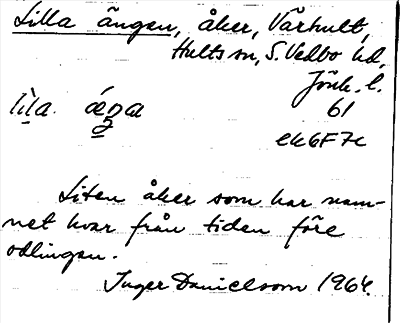 Lilla ängen, åker, Vårhult,
Hults sn, S. Vedbo hd,
Jönk. l.
61
ek6F7c
Liten åker som har nam-
net kvar från tiden före
odlingen.
Inger Danielsson 1964.